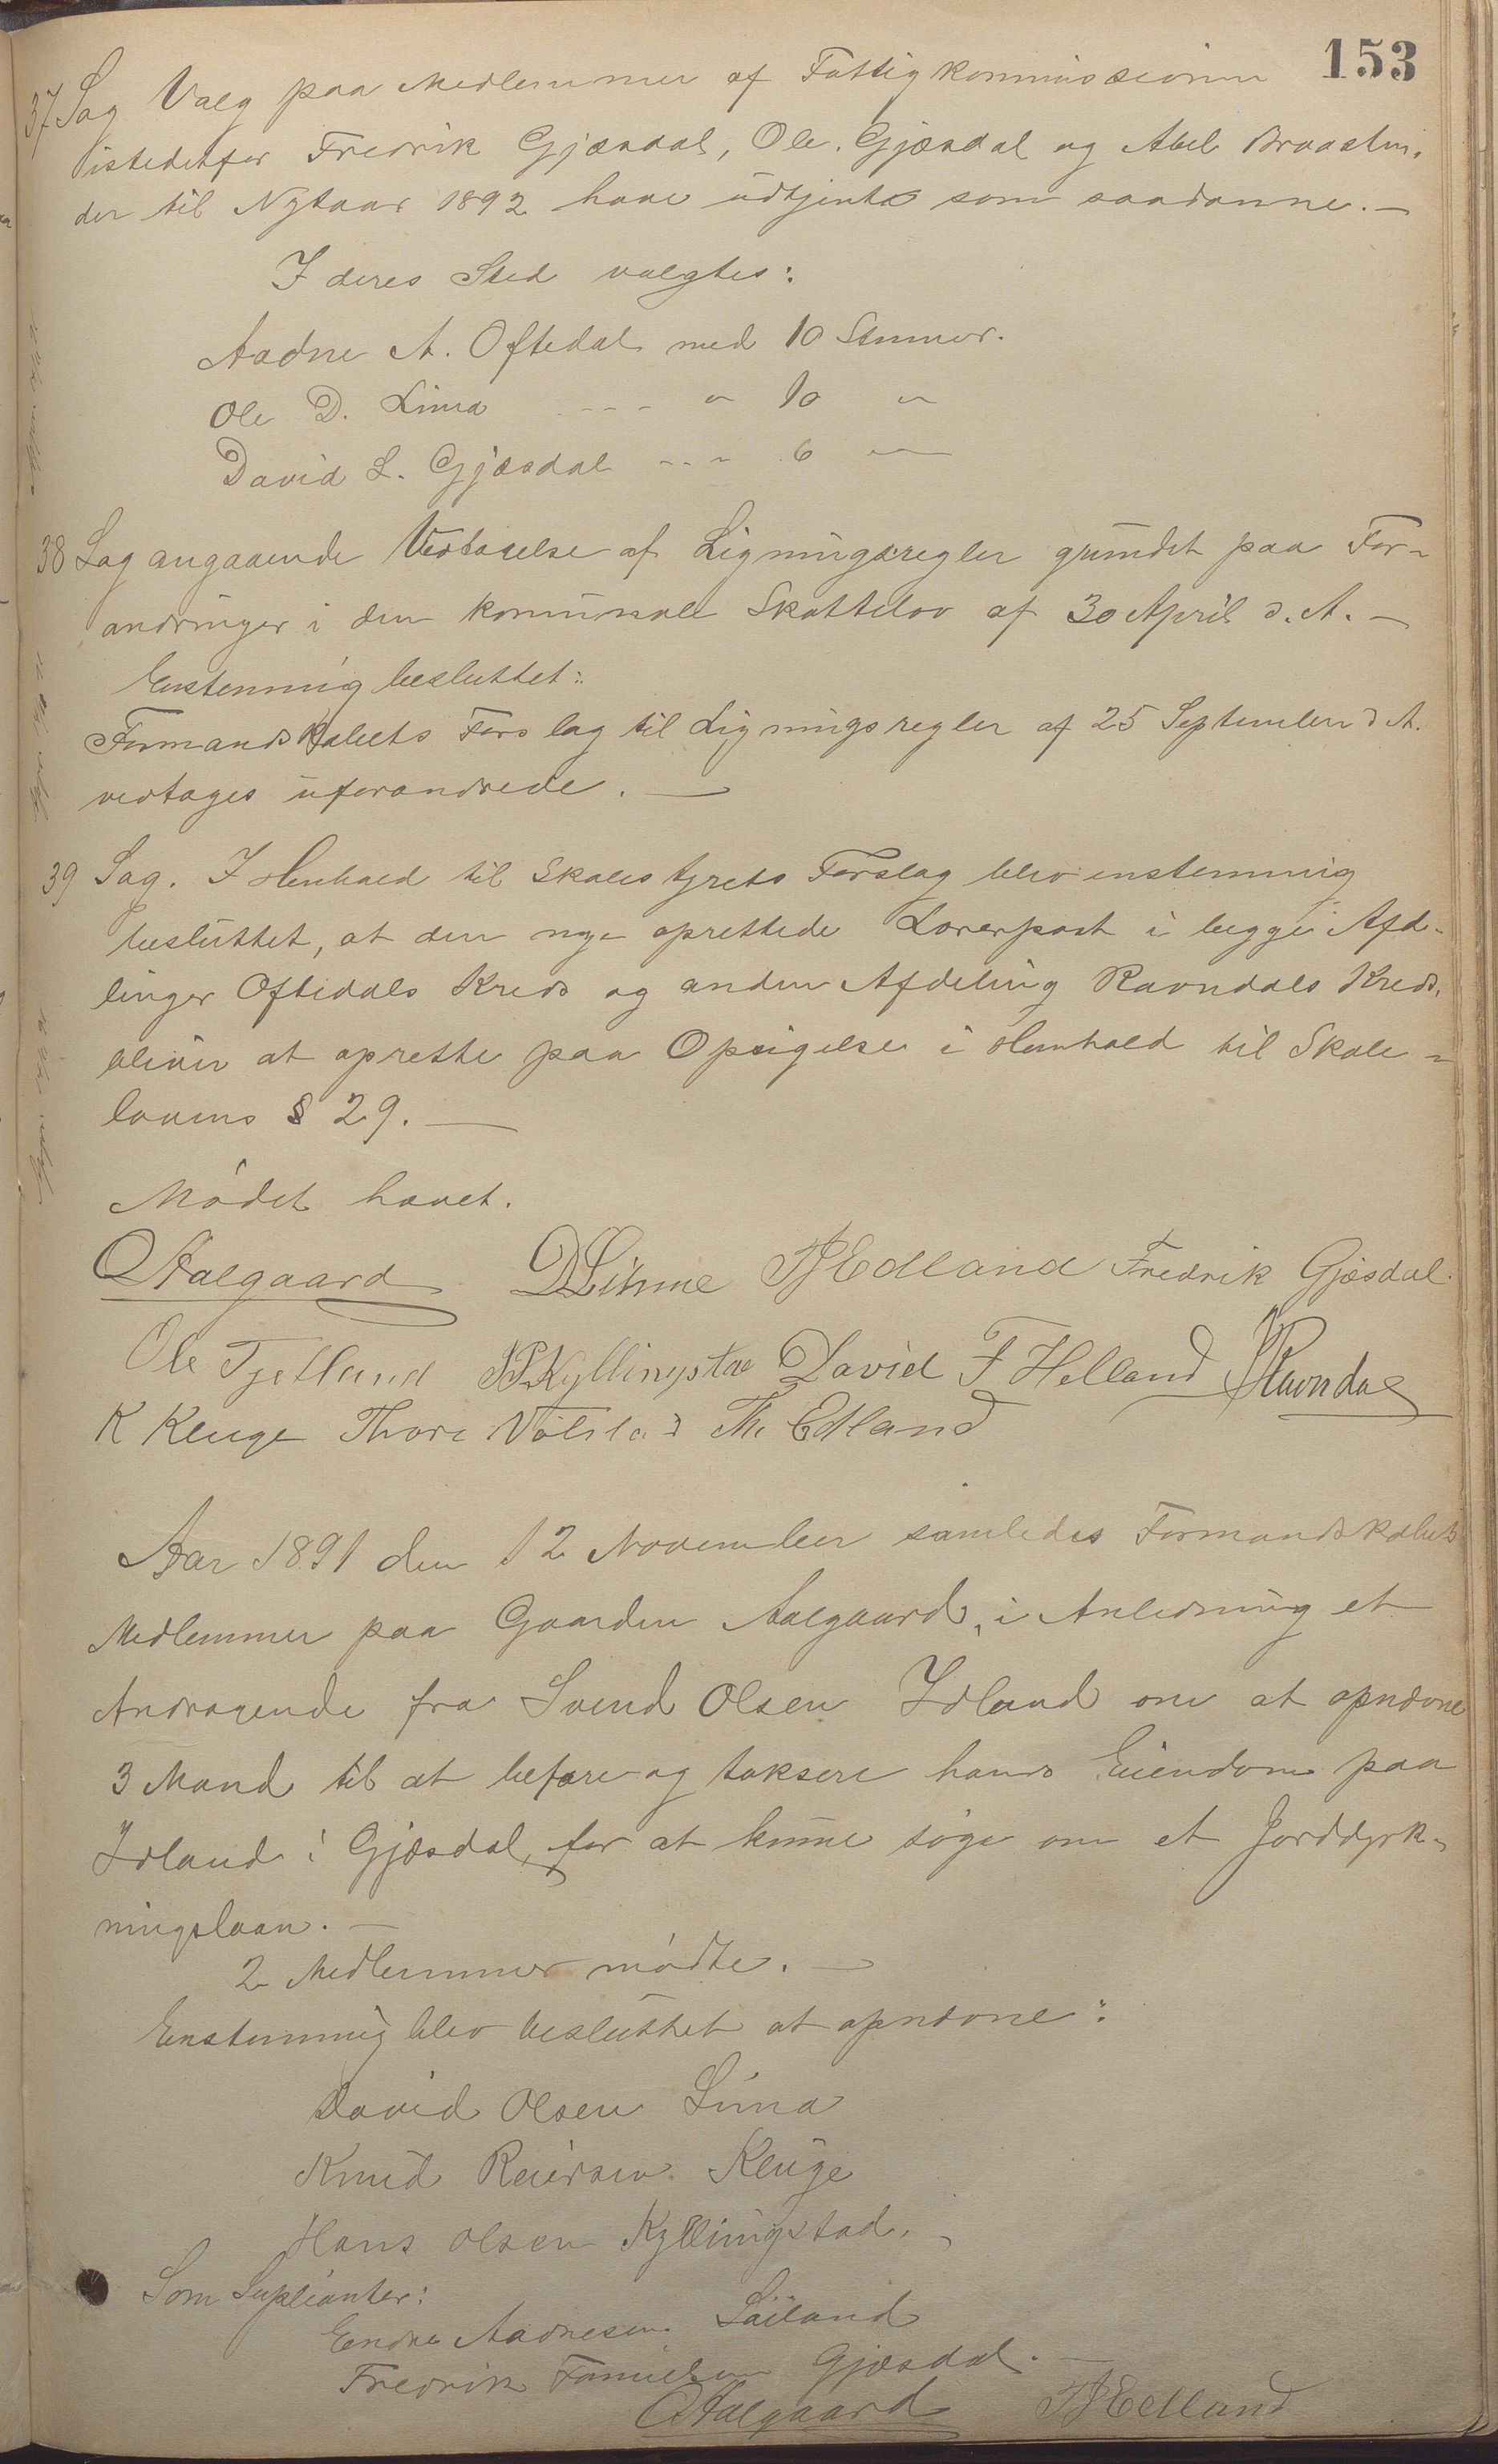 153
37 Sag Valg paa Medlemmer af Fattigkommissionen
istedetfor Fredrik Gjæsdal, Ole. Gjæsdal og Abel Braastein,
der til Nytaar 1892 have udtjent som saadanne. —
I deres Sted valgtes:
Aadne A. Oftedal med 10 Stemmer.
Ole D. Lima - - - " 10 "
David L. Gjæsdal - - - 6 "
38 Sag angaaende Vedtagelse af Ligningsregler grundet paa For-
andringer i den kommunale Skattelov af 30 April d. A. —
Enstemmig besluttet:
Formandskabets Forslag til Ligningsregler af 25 September d A.
vedtages uforandrede. —
39 Sag. I Henhold til Skolestyrets Forslag blev enstemmig
besluttet, at den nye oprettede Lærerpost i begge Afde-
linger Oftedals Kreds og anden Afdeling Ravndals Kreds,
bliver at oprette paa Opsigelse i Henhold til Skole-
lovens § 29. —
Mødet hævet.
O Aalgaard D Lima TJEdland Fredrik Gjæsdal.
Ole Tjetland Kyllingstad David F Helland Ravndal
K Kluge Thore Th. Edland
Aar 1891 den 12 November samledes Formandskabets
Medlemmer paa Gaarden Aalgaard, i Anledning et
Andragende fra Svend Olsen Idland om at opnævne
3 Mand til at befare og taksere hans Eiendom paa
Idland i Gjæsdal, for at kunne søge om et Jorddyrk-
ningslaan. —
2 Medlemmer mødte. —
Enstemmig blev besluttet at opnævne:
David Olsen Lima
Knud Reiersen Kluge
Hans Olsen Kyllingstad.
Som Suplianter:
Endre Aadnesen
Fredrik Gjæsdal. —
O Aalgaard TJEdland